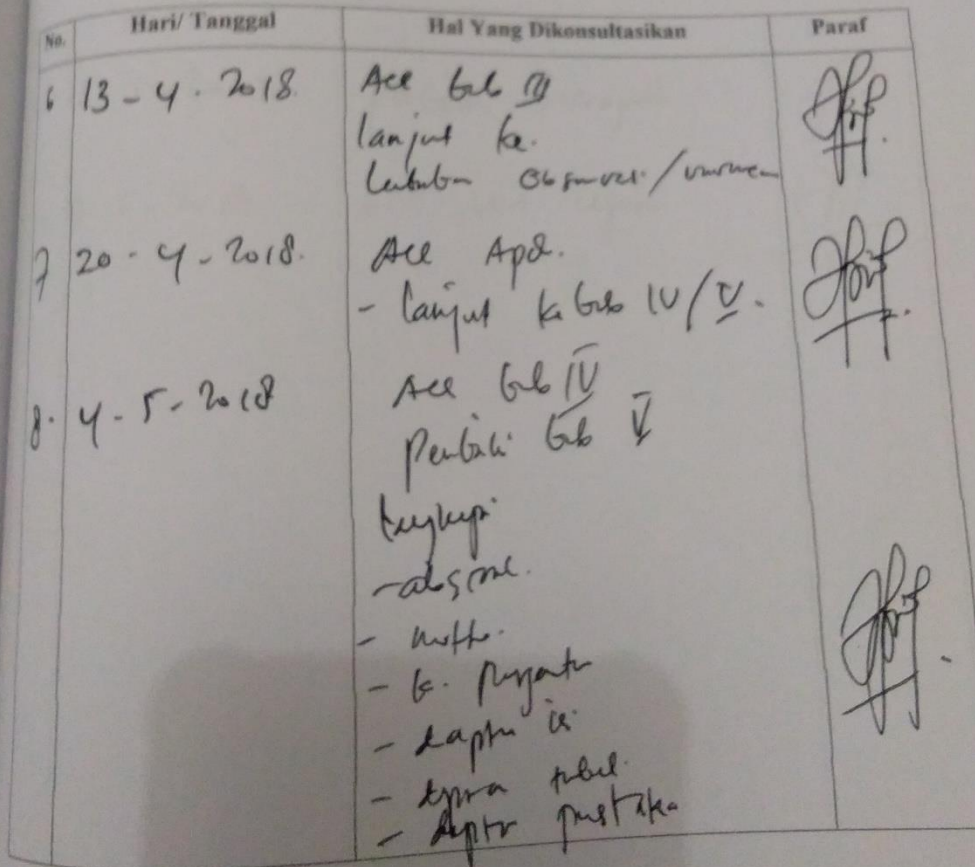 No. Hari/ Tanggal Hal Yang Dikonsultasikan Paraf
6 13-4-2018. Acc bab III
lanjut ke
7 20-4-2018. Acc Apd.
- lanjut ke bab IV/V.
8. 4-5-2018 Acc bab IV
Perbaiki bab V
lengkapi
- motto.
- k. pengantar
- daftar isi
- tabel
- daftar pustaka